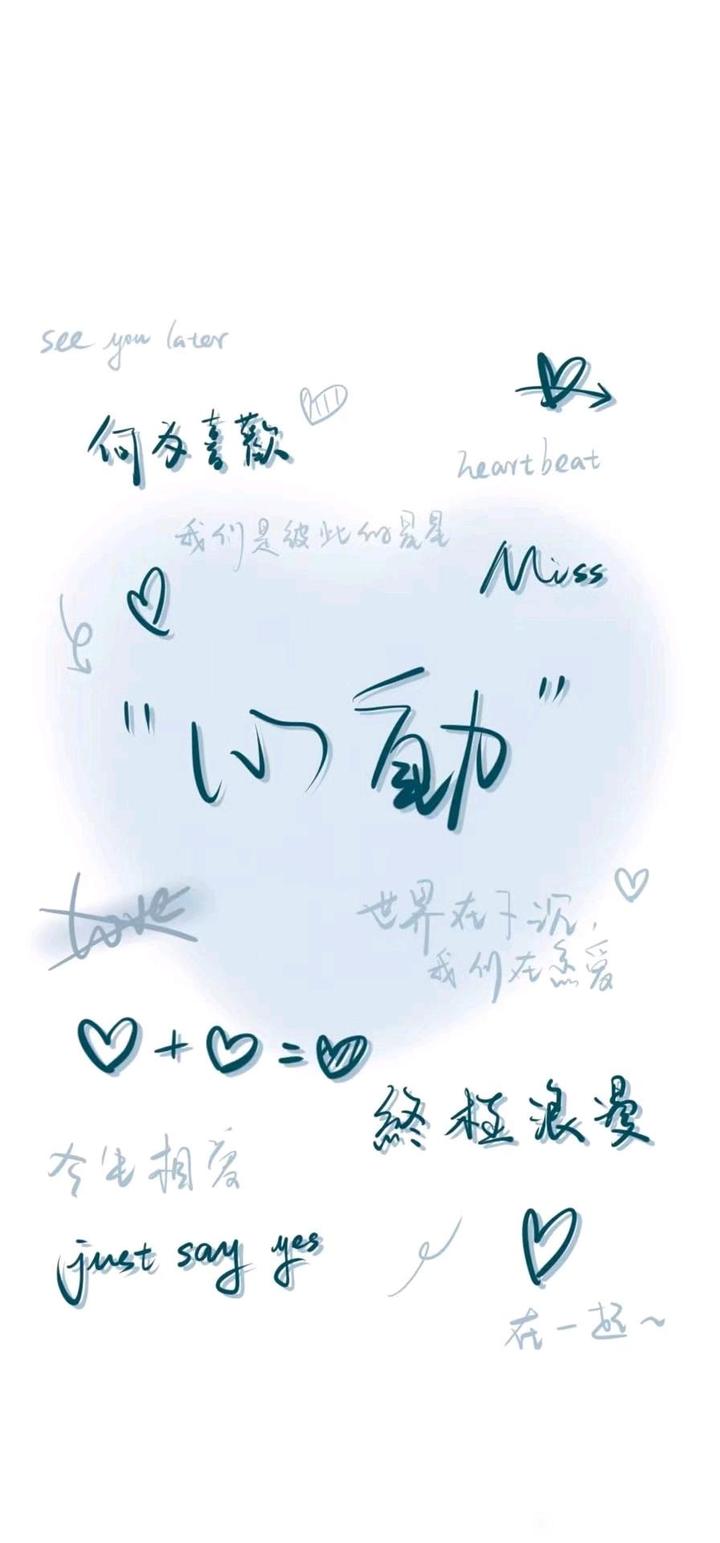 see you later
何为喜歡
heartbeat
我们是彼此的星星
Miss
"心動"
love
世界在下沉，
我们在戀爱
+ =
終極浪漫
今生相爱
just say yes
在一起~